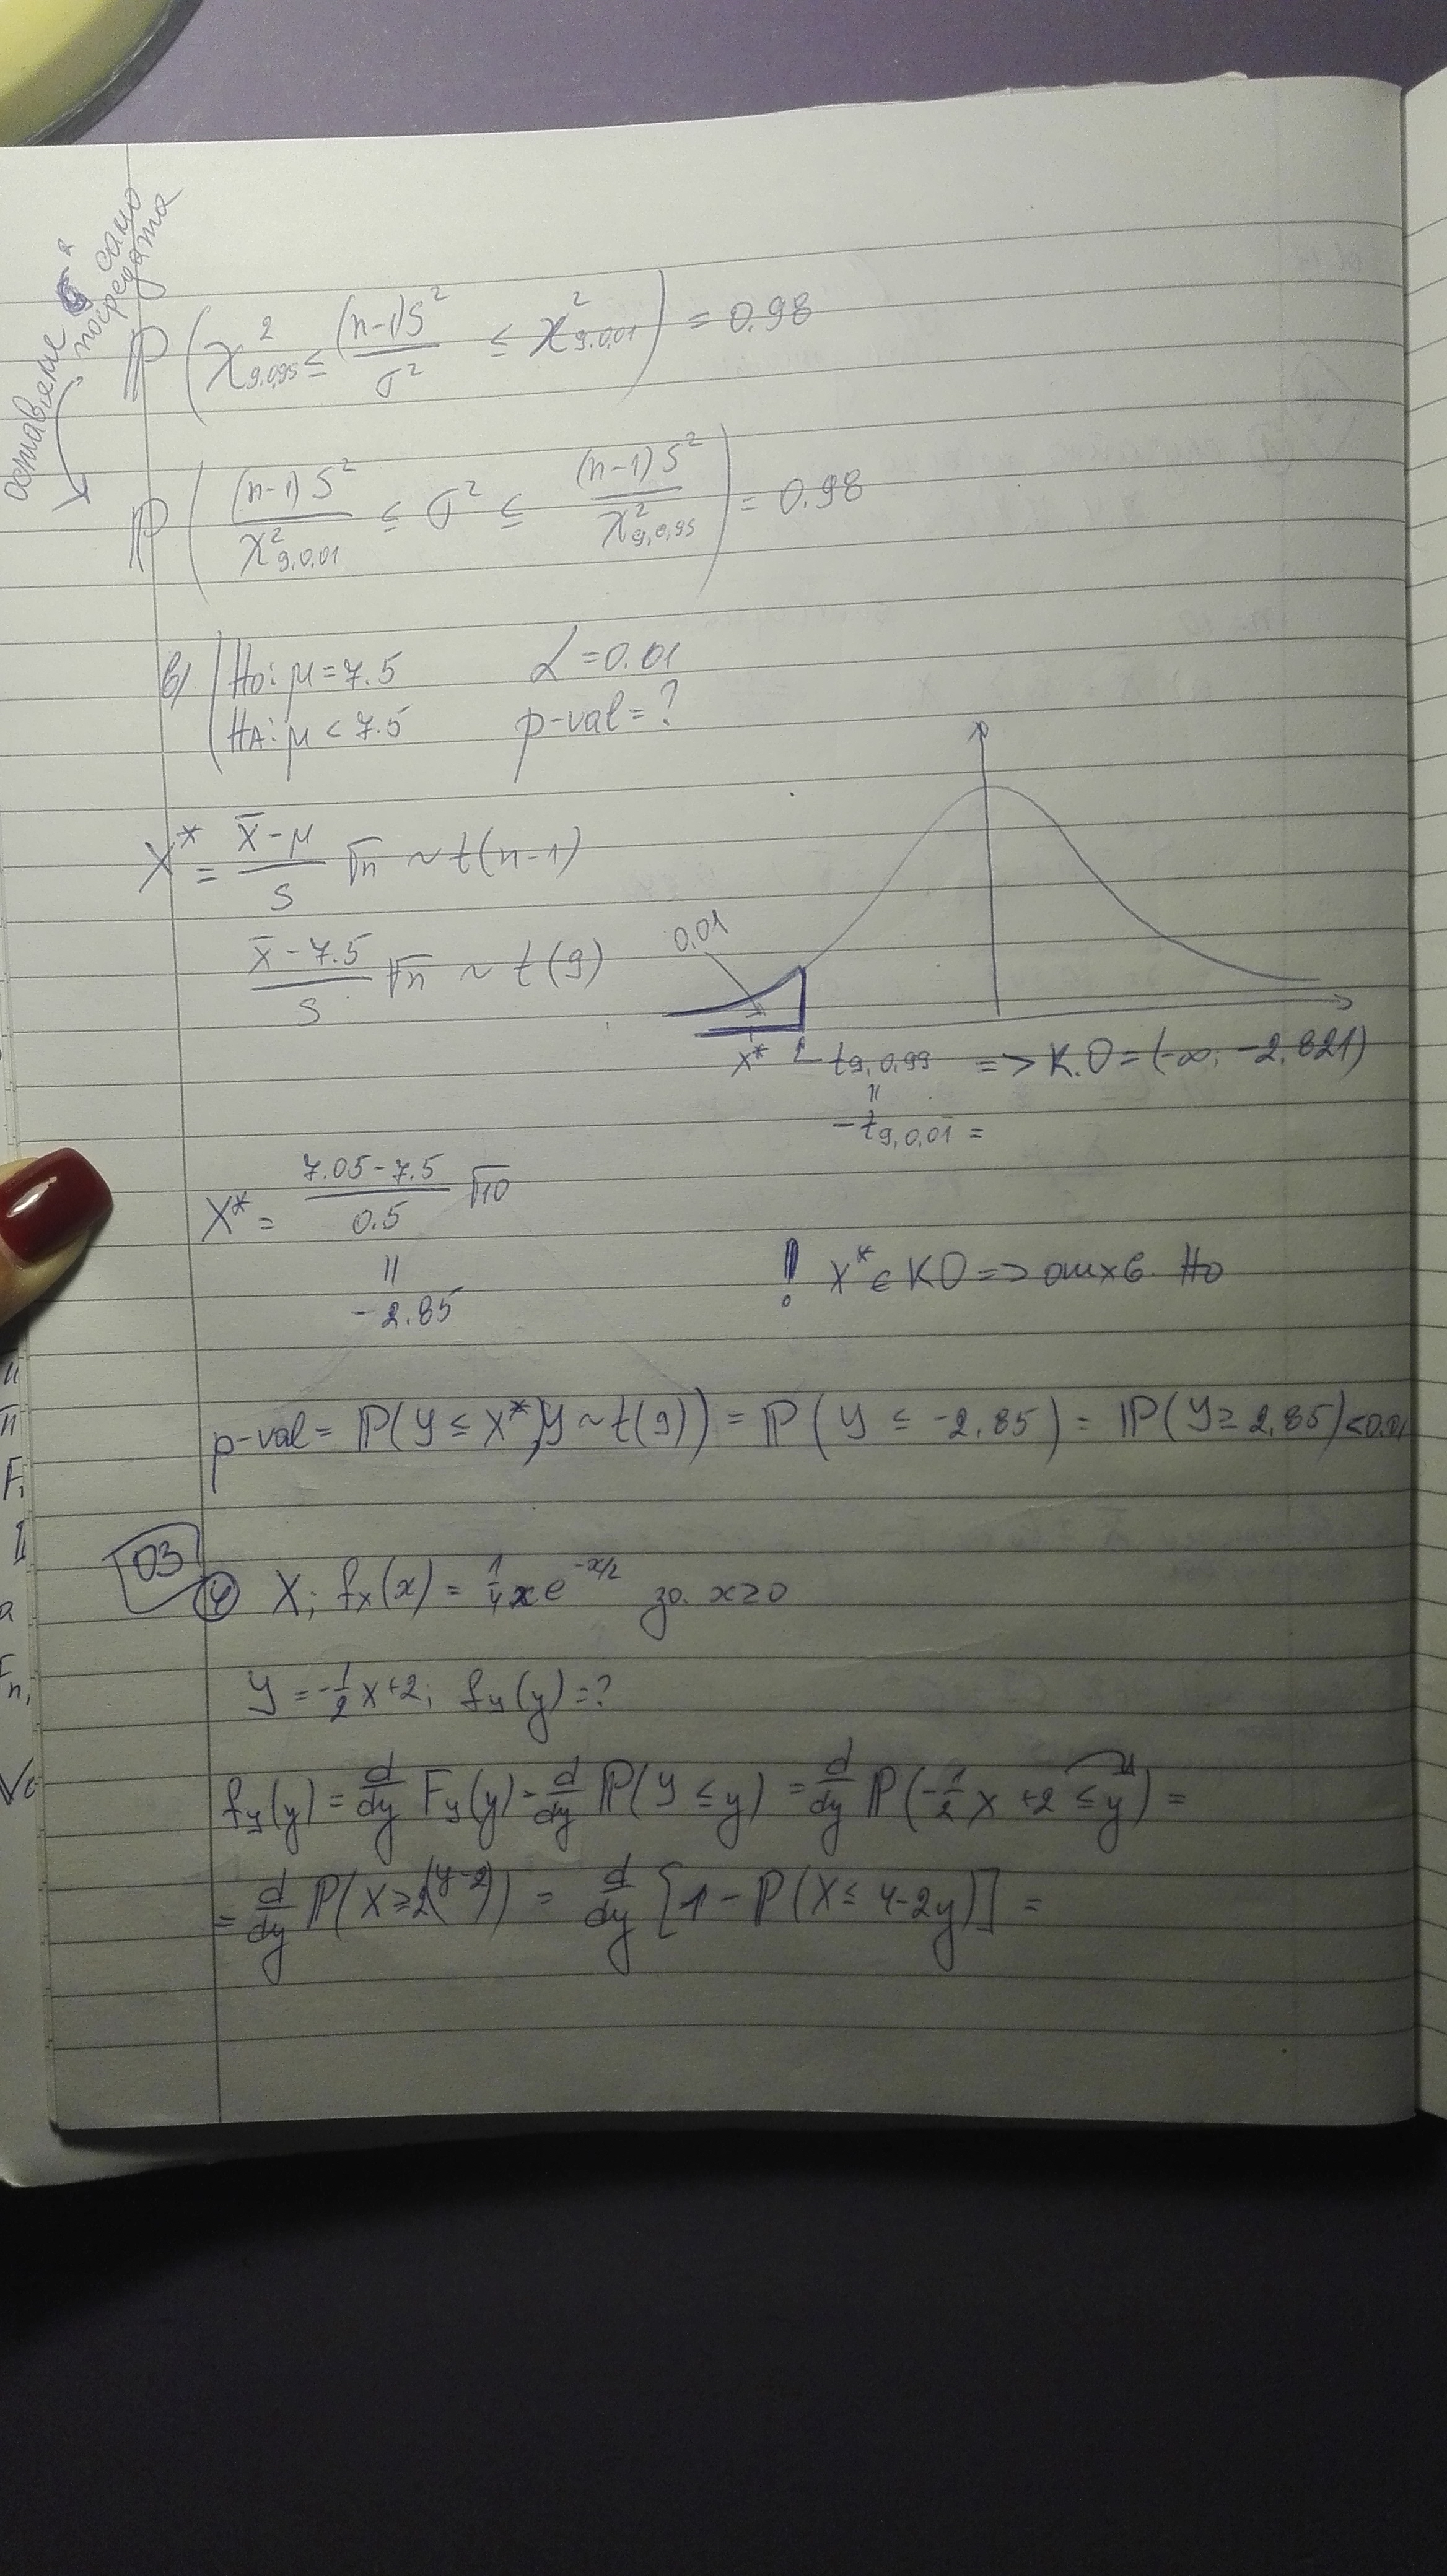 оставяме σ² само
посредата
ℙ(χ²_{9,0,95} ≤ (n-1)S²/σ² ≤ χ²_{9,0,01}) = 0.98
ℙ((n-1)S²/χ²_{9,0,01} ≤ σ² ≤ (n-1)S²/χ²_{9,0,95}) = 0.98
в) | H₀: μ = 7.5   α = 0.01
| H_A: μ < 7.5   p-val = ?
X* = (x̄-μ)/S √n ~ t(n-1)
(x̄-7.5)/S √n ~ t(9)
0,01
X*   t_{9,0,99} => K.O = (-∞; -2,821)
=
-t_{9,0,01} =
X* = (7.05-7.5)/0.5 √10
=
-2.85
! X* ∈ KO => отхв. H₀
p-val = ℙ(Y ≤ X*, Y ~ t(9)) = ℙ(Y ≤ -2,85) = ℙ(Y ≥ 2,85) < 0.01
03
④ X; f_X(x) = 1/4 x e^{-x/2} за x ≥ 0
Y = -1/2 X + 2; f_Y(y) = ?
f_Y(y) = d/dy F_Y(y) = d/dy ℙ(Y ≤ y) = d/dy ℙ(-1/2 X + 2 ≤ y) =
= d/dy ℙ(X ≥ 2(y-2)) = d/dy [1 - ℙ(X ≤ 4-2y)] =